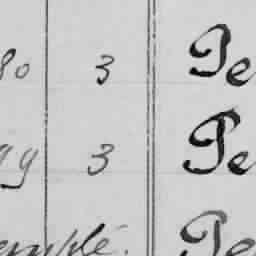 80 3 Pe
99 3 Pe
emple. Pe